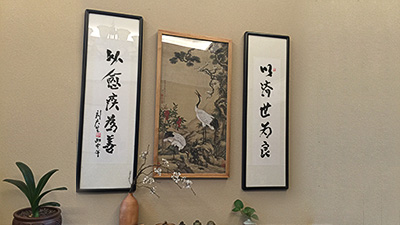 以濟世为良
以愈疾為善